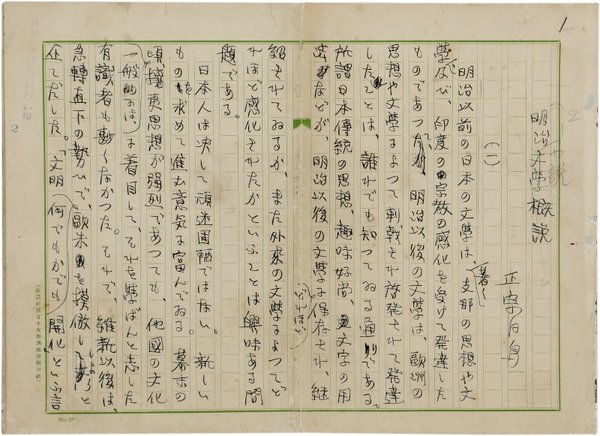 1
明治文學概説
正宗白鳥
(一)
明治以前の日本の文學は、著しく支那の思想や文
學及び、印度の宗教の感化を受けて發達した
ものであつたが、明治以後の文學は、歐洲の
思想や文學によつて刺戟され啓發されて發達
したことは、誰れでも知つてゐる通りである。
所謂日本傳統の思想、趣味好尚、文字の用
などが明治以後の文學にどれほど保存され、繼
紹されてゐるか、また外來の文學によつてど
れほど感化されたかといふことは興味ある問
題である。
日本人は決して頑迷固陋ではない。新しい
ものを求めて進む意気に富んでゐる。幕末の
頃攘夷思想が強烈であつても、他國の文化
に着目してそれを學ばんと志した
有識者も勘くなかつた。それで、維新以後は、
急轉直下の勢ひで、歐米を摸倣しようと
企てだした。「文明」何でもかでも開化といふ言